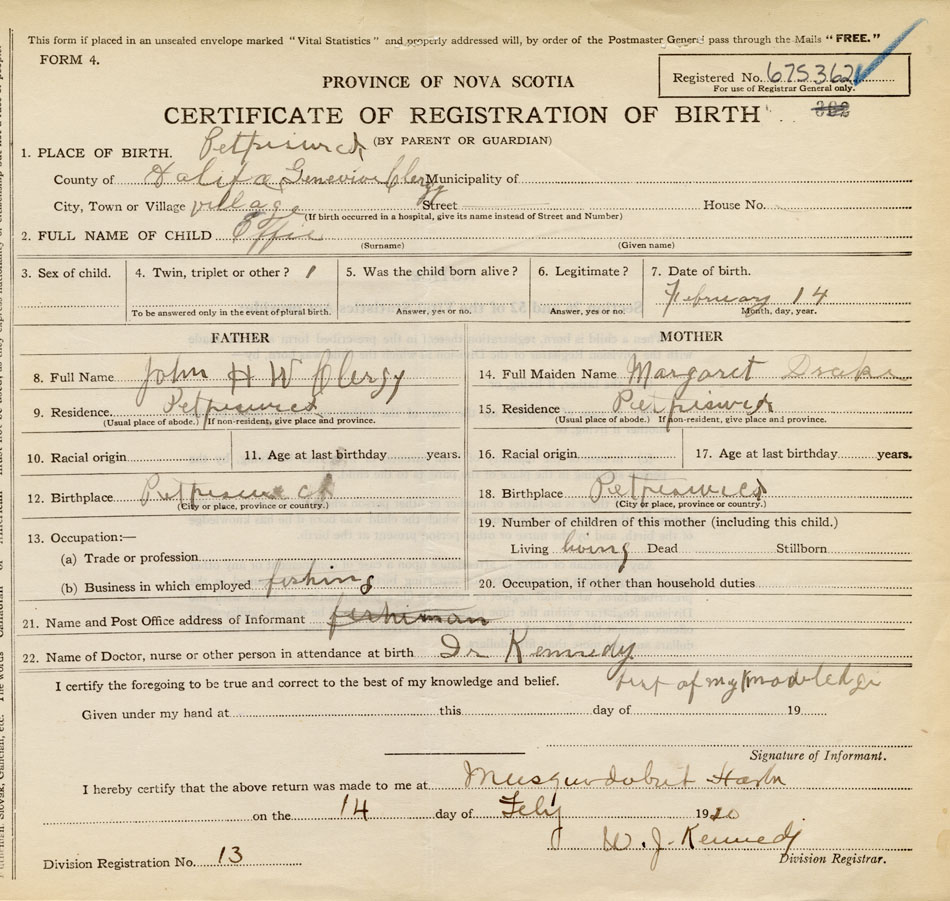 This form if placed in an unsealed envelope marked "Vital Statistics" and properly addressed will, by order of the Postmaster General pass through the Mails "FREE."
FORM 4.
PROVINCE OF NOVA SCOTIA
Registered No. 675362
For use of Registrar General only.
CERTIFICATE OF REGISTRATION OF BIRTH
(BY PARENT OR GUARDIAN)
1. PLACE OF BIRTH. Petpiswick
County of Halifa Genevive Clergy Municipality of
City, Town or Village village Street House No.
(If birth occurred in a hospital, give its name instead of Street and Number)
2. FULL NAME OF CHILD Effie
(Surname) (Given name)
3. Sex of child. 4. Twin, triplet or other? 1 5. Was the child born alive? 6. Legitimate? 7. Date of birth.
February 14
To be answered only in the event of plural birth. Answer, yes or no. Answer, yes or no. Month, day, year.
FATHER MOTHER
8. Full Name John H W Clergy 14. Full Maiden Name Margaret Drake
9. Residence Petpiswick 15. Residence Petpiswick
(Usual place of abode.) If non-resident, give place and province. (Usual place of abode.) If non-resident, give place and province.
10. Racial origin 11. Age at last birthday years. 16. Racial origin 17. Age at last birthday years.
12. Birthplace Petpiswick 18. Birthplace Petpiswick
(City or place, province or country.) (City or place, province or country.)
13. Occupation:— 19. Number of children of this mother (including this child.)
(a) Trade or profession Living living Dead Stillborn
(b) Business in which employed fishing 20. Occupation, if other than household duties
21. Name and Post Office address of Informant fishiman
22. Name of Doctor, nurse or other person in attendance at birth Dr Kennedy
I certify the foregoing to be true and correct to the best of my knowledge and belief. of my
Given under my hand at this day of 19
Signature of Informant.
I hereby certify that the above return was made to me at Musquodobit Harbr
on the 14 day of Feby 1920
W. J. Kennedy
Division Registration No. 13 Division Registrar.